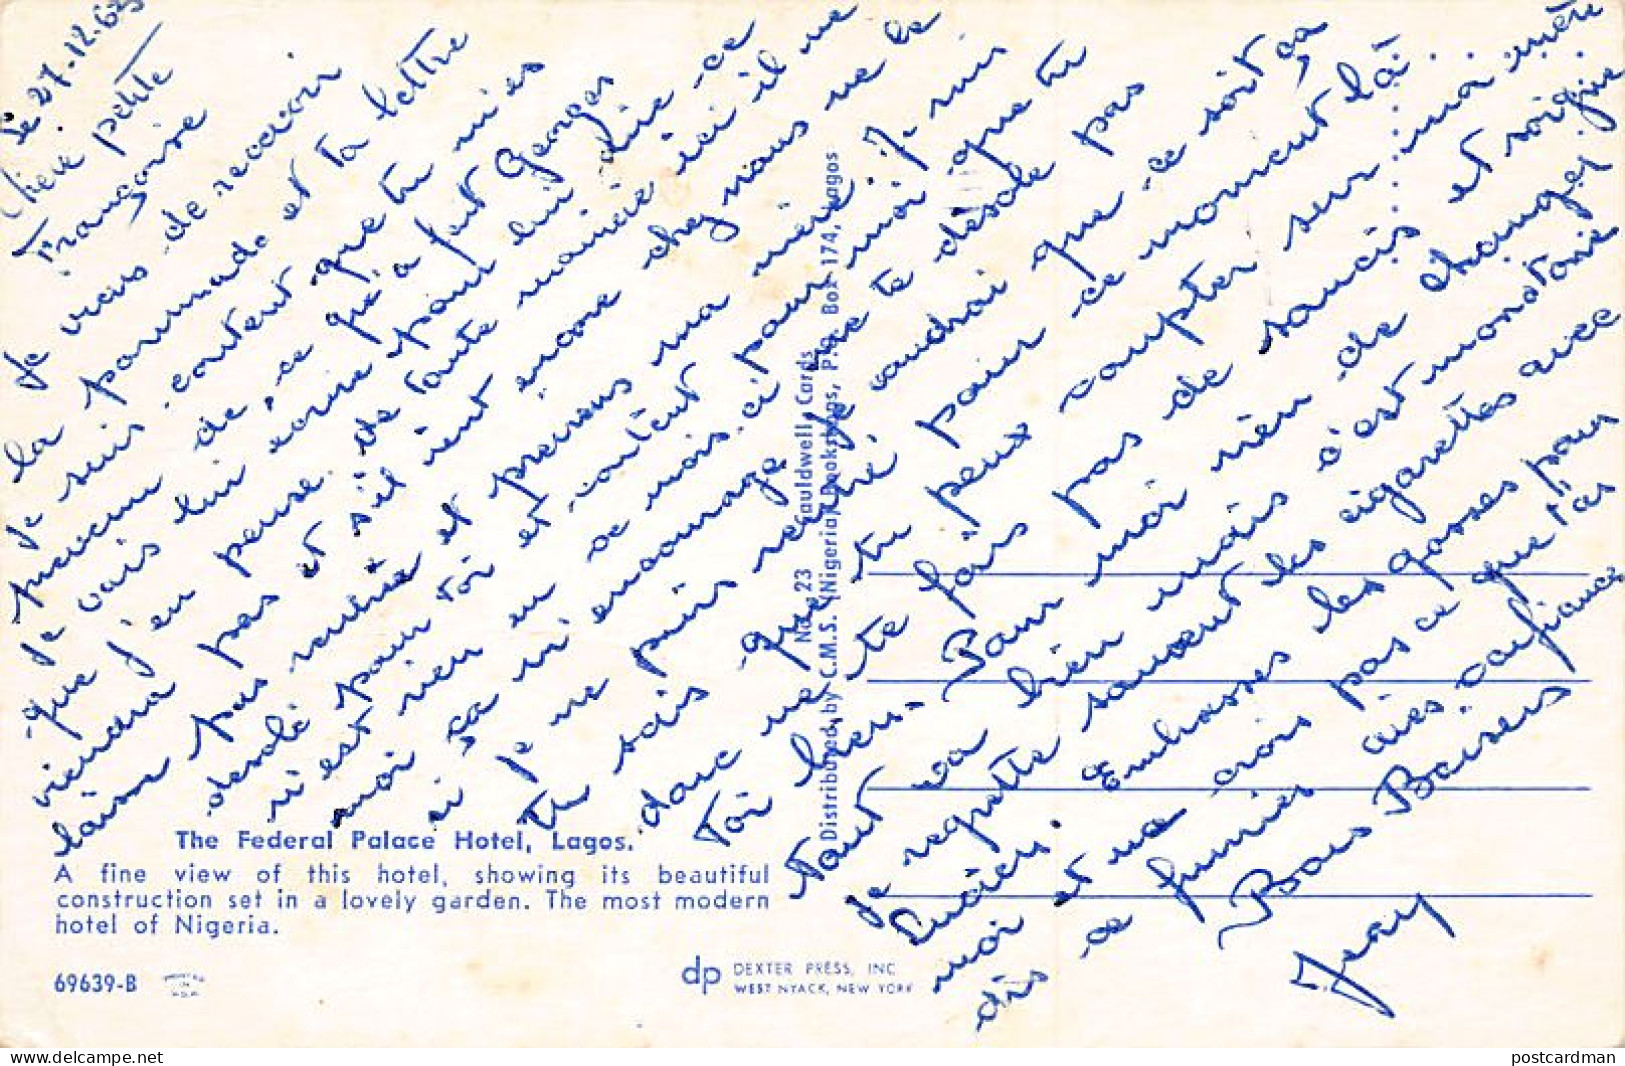 le 27.12.63
Chère petite
Françoise
Je viens de recevoir
la pommade et ta lettre
Je suis content que tu m'es
prévenu de ce qu'a fait Georges
Je vais lui écrire pour lui dire ce
que j'en pense. de toute manière ici il ne
viendra pas et s'il vient encore chez nous ne le
laisse pas rentrer et préviens ma mère. Je suis
désolé pour toi et surtout pour moi que tu
n'est rien eu ce mois ci ne te désole pas
moi ça m'encourage. Je voudrai que ce soit ça
si je ne puis rentré pour ce moment là.
Tu sais que tu peux compter sur moi mère
donc ne te fais pas de soucis et soigne
toi bien. Pour moi rien de changer
tout va bien mais c'est monotone
Je regrette souvent les cigarettes avec
Lucien. Embrasses les gosses pour
moi et ne crois pas ce que t'as
dis ce fumier aies confiance
Bons Baisers
Jeay
The Federal Palace Hotel, Lagos.
A fine view of this hotel, showing its beautiful
construction set in a lovely garden. The most modern
hotel of Nigeria.
69639-B
No. 23 Cauldwell Cards
Distributed by C.M.S. (Nigeria) Bookshops, P.O. Box 174, Lagos
dp DEXTER PRESS, INC.
WEST NYACK, NEW YORK
postcardman